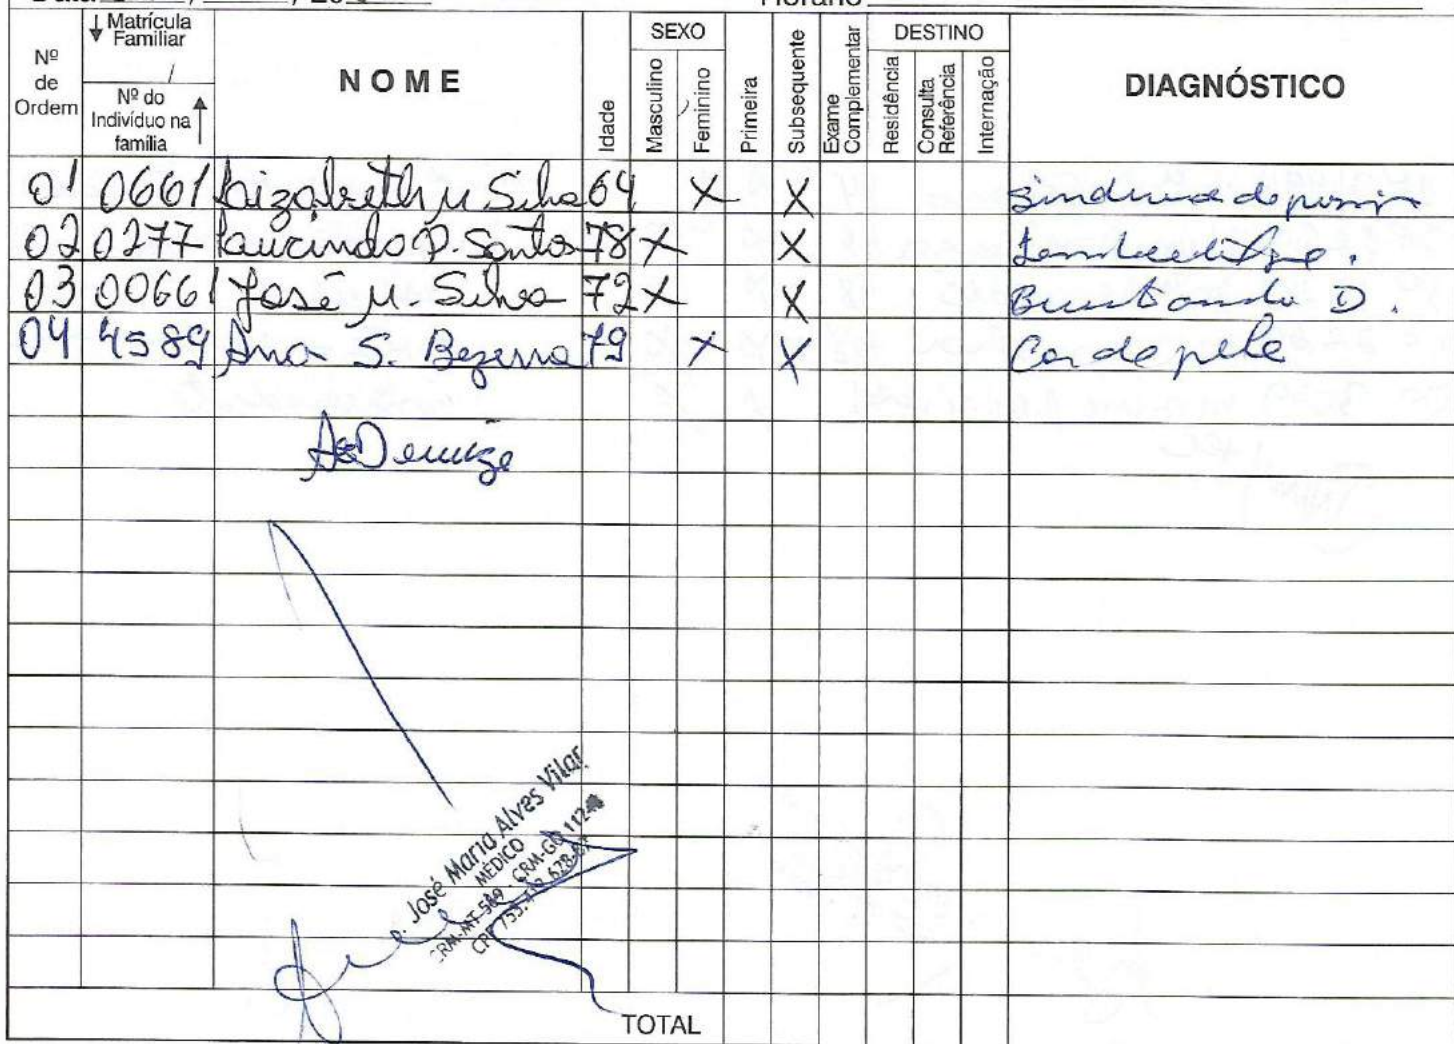 Horário
Nº de Ordem
Matrícula Familiar
Nº do Indivíduo na família
NOME
Idade
SEXO
Masculino
Feminino
Primeira
Subsequente
Exame Complementar
DESTINO
Residência
Consulta Referência
Internação
DIAGNÓSTICO
01 0661 M Silva 64 X X
02 0277 Laurindo P. Santos 78 X X
03 00661 José M. Silva 72 X X D.
04 4589 Ana S. Bezerra 79 X X Ca de pele
José Maria Alves Vilar
MÉDICO
CRM-MT 589 - CRM-GO
CPF
TOTAL